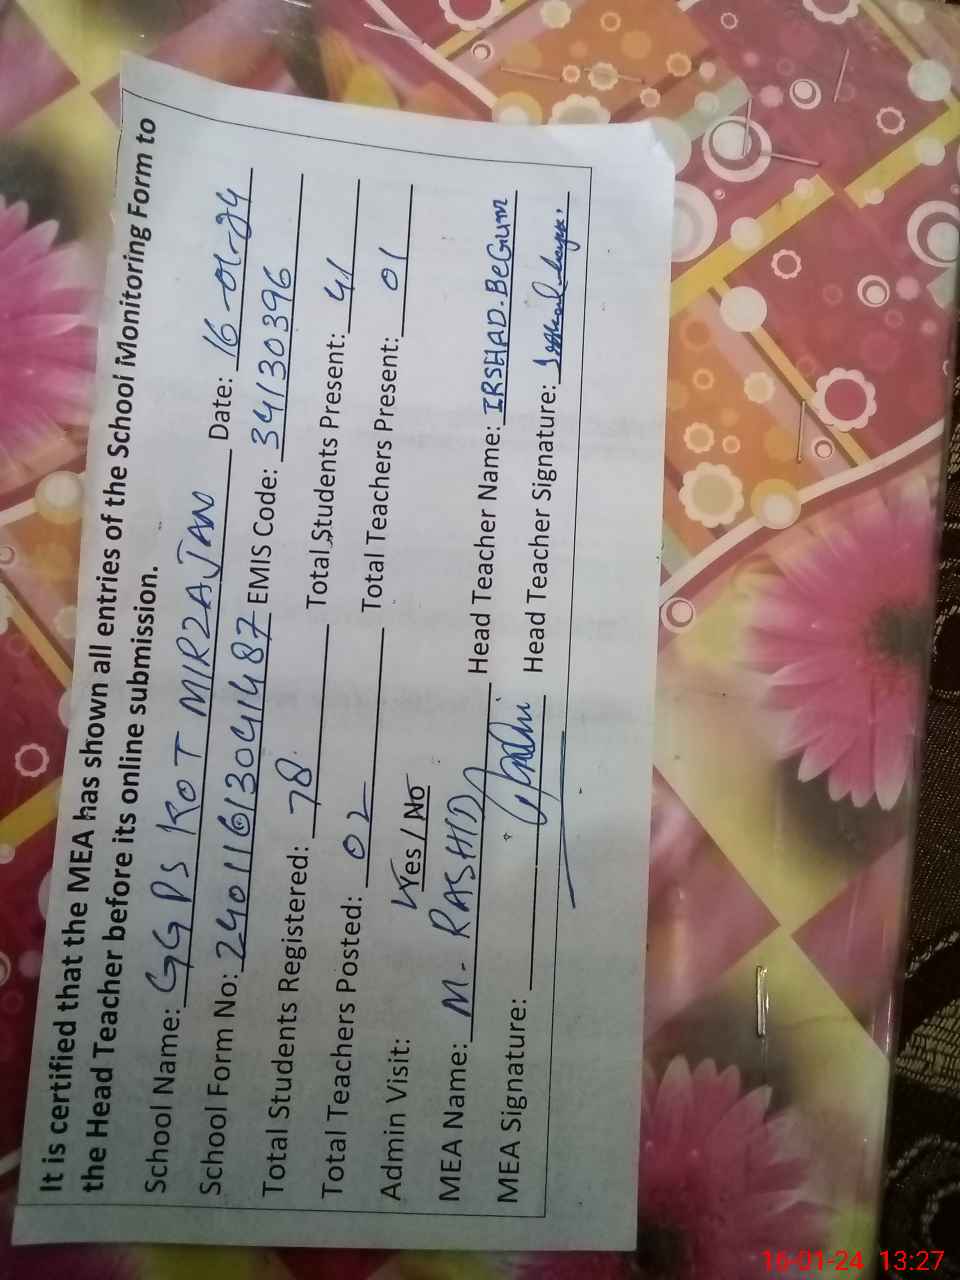 It is certified that the MEA has shown all entries of the School Monitoring Form to
the Head Teacher before its online submission.
School Name: GGPS KOT MIRZAJAN Date: 16-01-24
School Form No: 24011613041487 EMIS Code: 34130396
Total Students Registered: 78 Total Students Present: 41
Total Teachers Posted: 02 Total Teachers Present: 01
Admin Visit: Yes / No
MEA Name: M. RASHID Head Teacher Name: IRSHAD. BEGUM
MEA Signature: Head Teacher Signature:
16-01-24 13:27